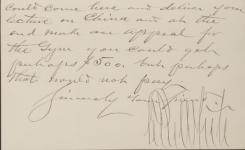 could come here and deliver your
lecture on China and at the
end make an appeal for
the Gym you could get
perhaps $500. but perhaps
that would not pay
Sincerely Your Friend